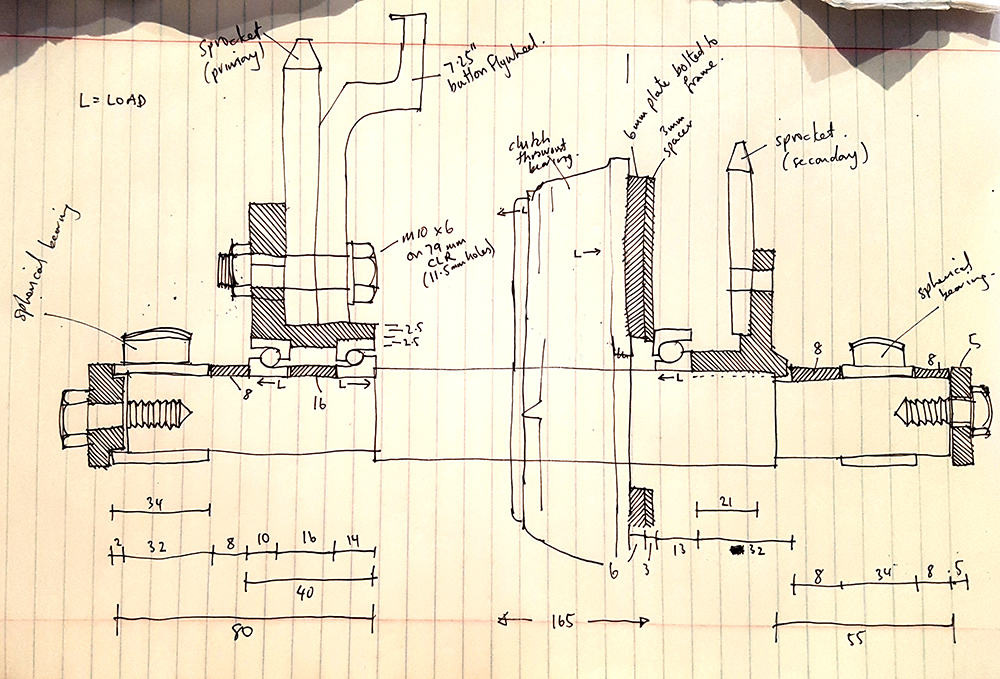 sprocket
(primary)
7.25"
button flywheel.
L = LOAD
6mm plate bolted to
frame.
3mm
spacer
clutch
throwout
bearing.
sprocket.
(secondary)
L
L
M10 x 6
on 79 mm
CLR
(11.5mm holes)
spherical bearing
spherical
bearing.
2.5
2.5
8
L
16
L
L
8
8
5
34
21
2
32
8
10
16
14
6
3
13
32
40
8
34
8
5
80
165
55